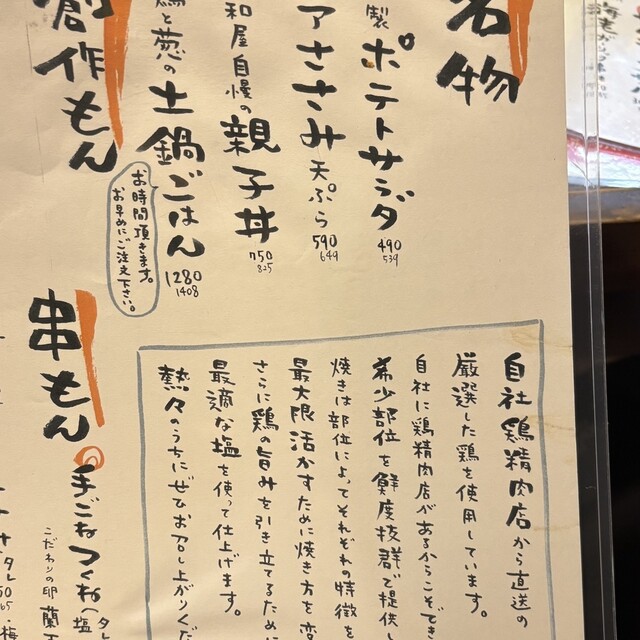 名物
製ポテトサラダ 490 539
アささみ天ぷら 590 649
和屋自慢の親子丼 750 825
鶏と葱の土鍋ごはん 1280 1408
お時間頂きます。
お早めにご注文下さい。
創作もん
自社鶏精肉店から直送の
厳選した鶏を使用しています。
自社に鶏精肉店があるからこそでき
希少部位を鮮度抜群で提供し
焼きは部位によってそれぞれの特徴を
最大限活かすために焼き方を変
さらに鶏の旨みを引き立てるために
最適な塩を使って仕上げます。
熱々のうちにぜひお召し上がりくだ
串もん
手ごねつくね(塩 タレ
こだわりの卵 蘭